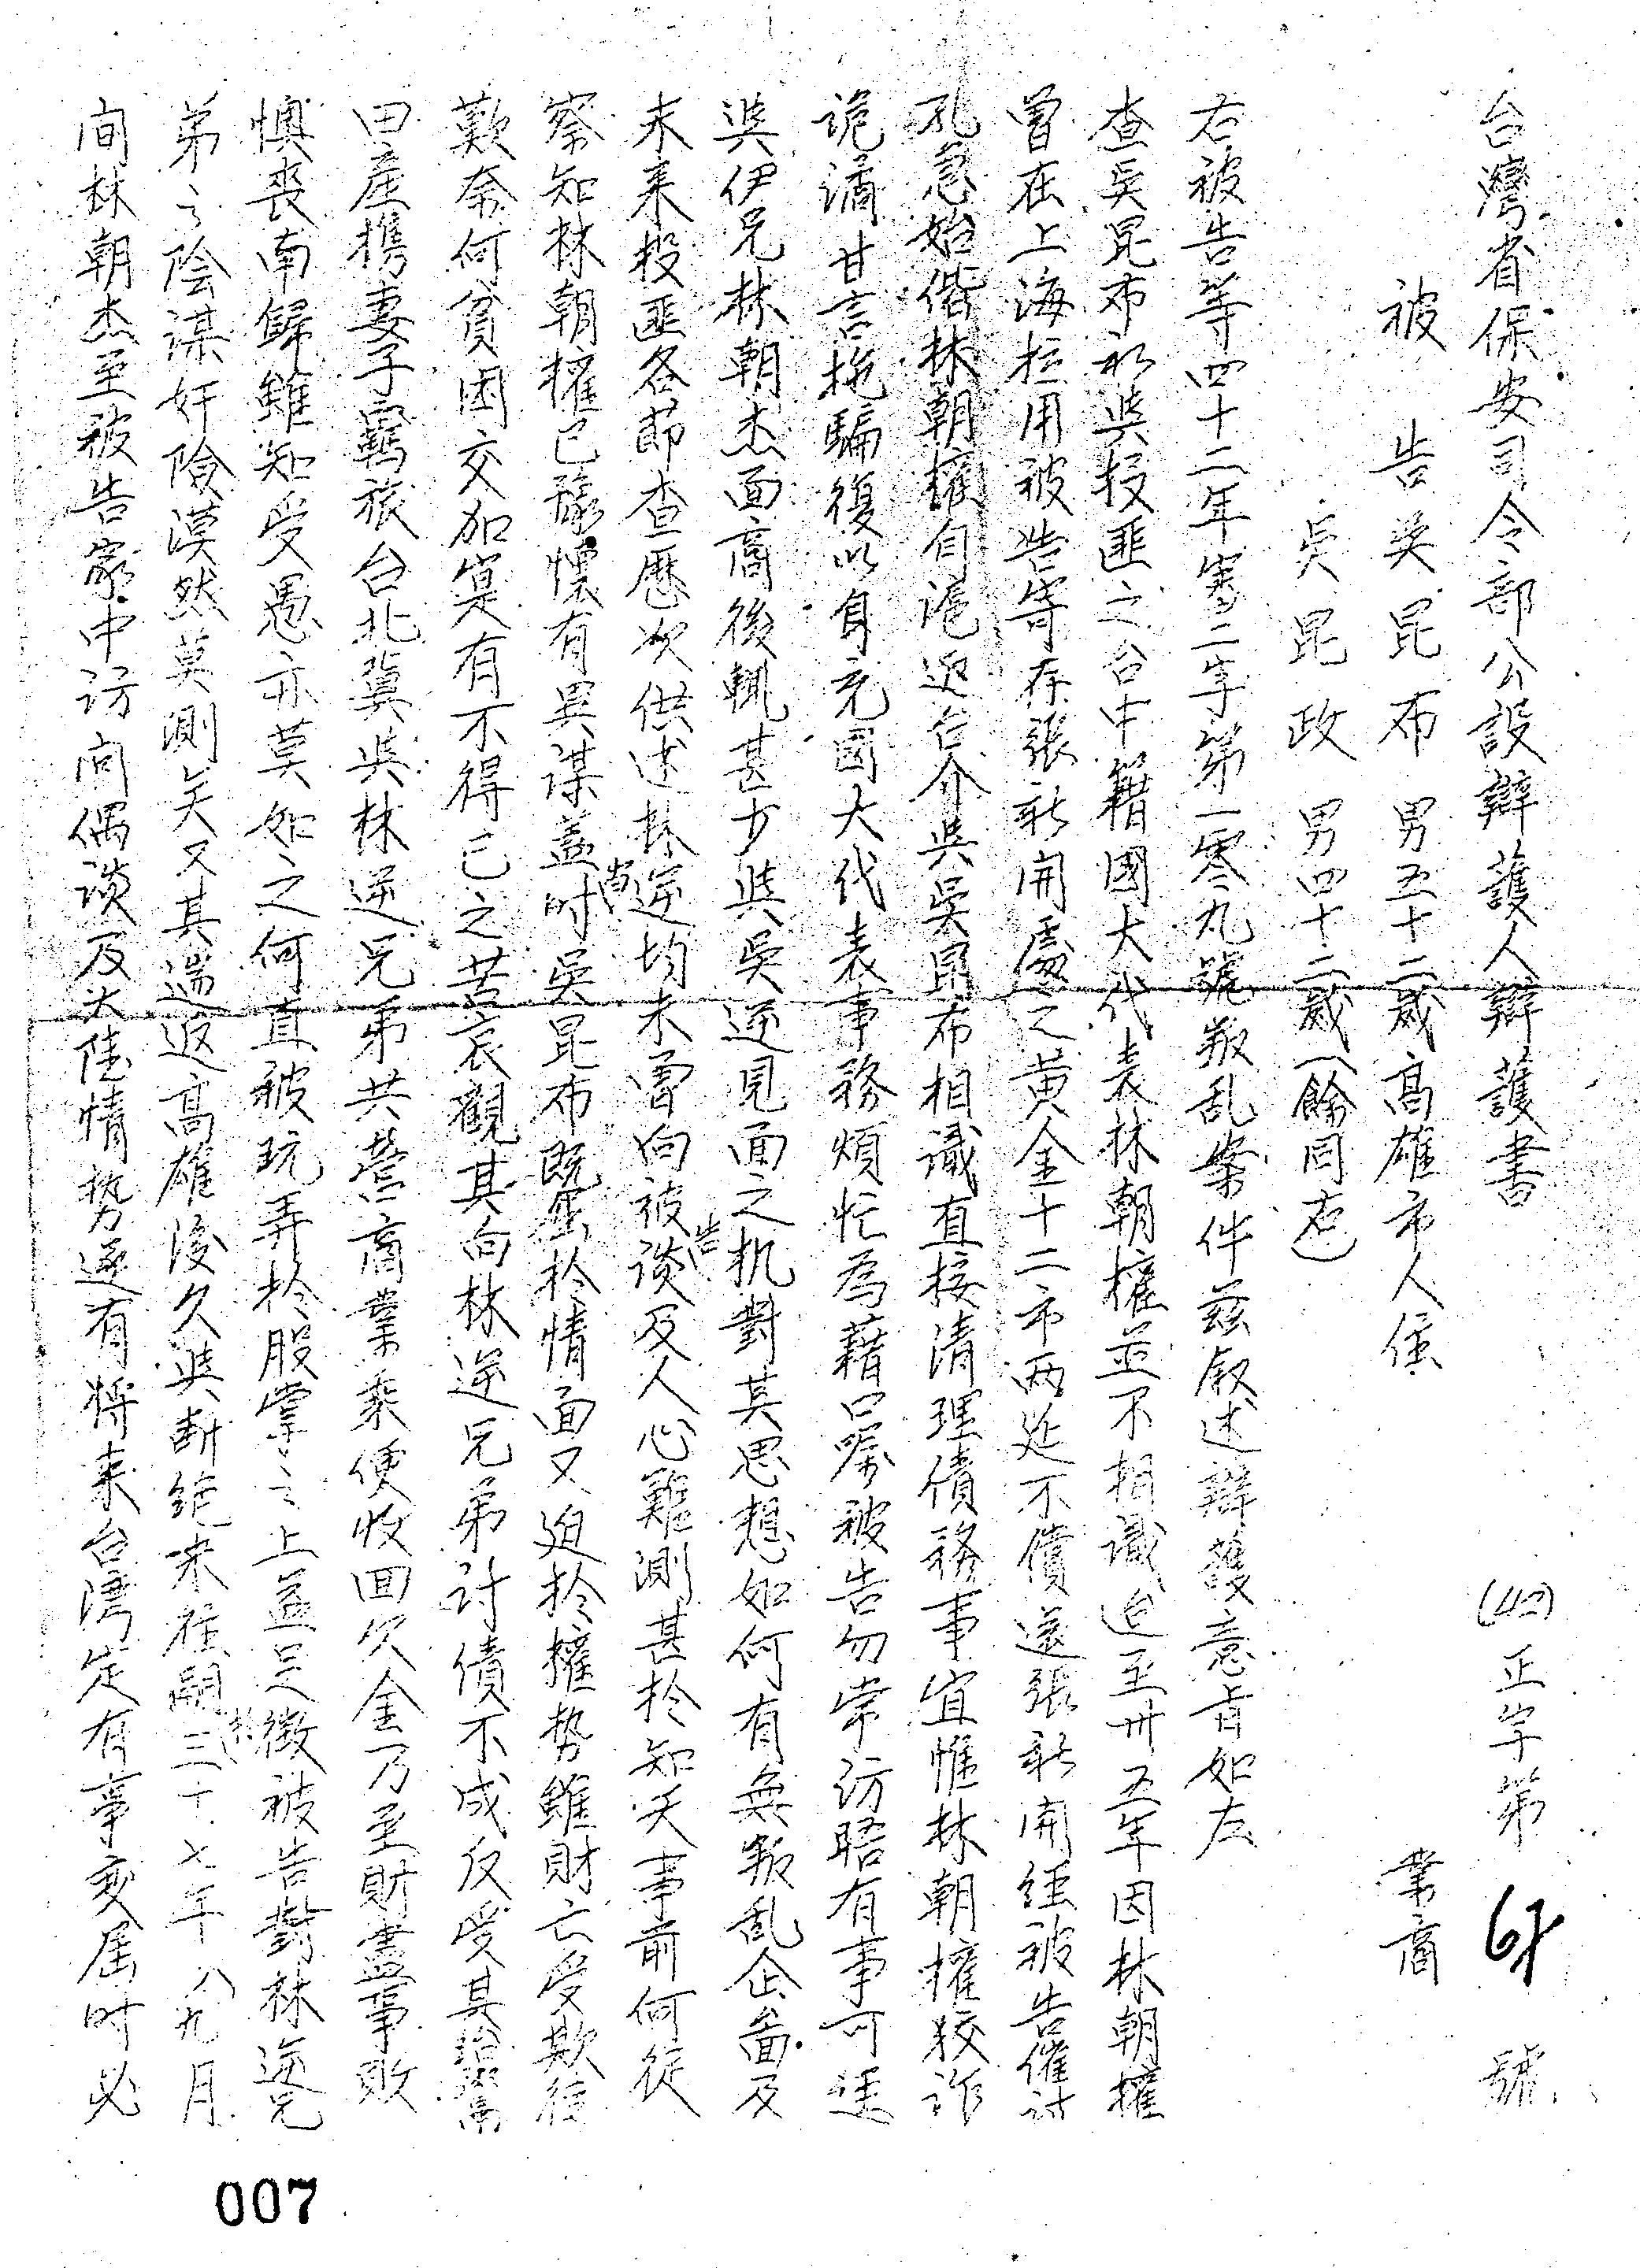 台灣省保安司令部公設辯護人辯護書
(42)正字第 67 號
被告吳昆布 男五十二歲高雄市人住 業商
吳昆政 男四十二歲(餘同右)
右被告等四十二年審三字第一零九號叛乱案件兹叙述辯護意旨如左
查吳昆布初與投匪之台中籍國大代表林朝權並不相識迨至卅五年因林朝權
曾在上海拉用被告寄存張新開處之黃金十二市両延不償還張新開經被告催討
孔急始偕林朝權自滬返台介與吳昆布相識直接清理債務事宜惟林朝權狡詐
詭譎甘言拖騙復以身充國大代表事務煩忙為藉口囑被告勿常訪晤有事可逕
與伊兄林朝杰面商後輒甚少與吳逆見面之机對其思想如何有無叛乱企畵及
未來投匪各節查歷次供述林逆均未曾向被告談及人心難測甚於知天事前何從
察知林朝權已豫懷有異謀蓋當时吳昆布既屈於情面又迫於權势雖財亡受欺徒
歎奈何貧困交加寔有不得已之苦衷觀其向林逆兄弟討債不成反受其給鬻
田產携妻子羇旅台北冀與林逆兄弟共營商業乘便收回欠金乃至財盡事敗
懊喪南歸雖知受愚亦莫如之何直被玩弄於股掌之上益足徵被告對林逆兄
弟之陰謀奸險漠然莫測矣又其遄返高雄後久與断絶来往嗣於三十七年八九月
间林朝杰至被告家中訪问偶談及大陸情势遂有将来台湾定有事变届时必
007